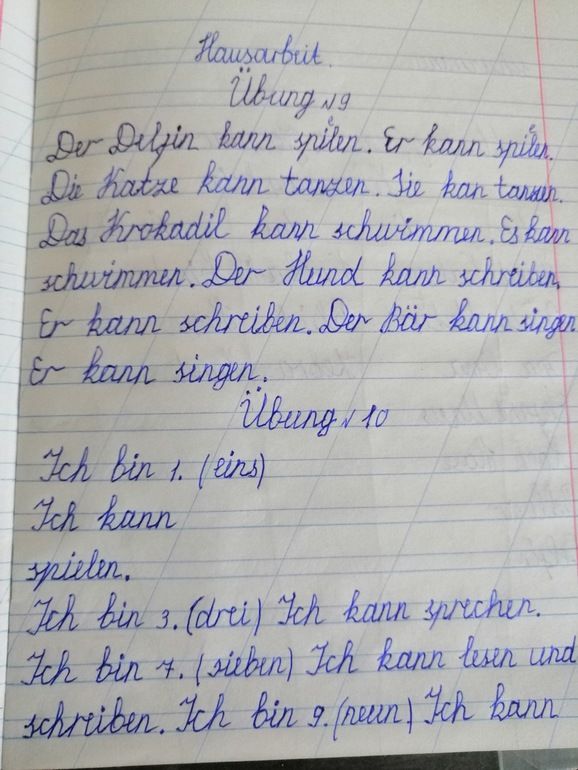 Hausarbeit.
Übung №9
Der Delfin kann spielen. Er kann spielen.
Die Katze kann tanzen. Sie kan tanzen.
Das Krokadil kann schwimmen. Es kann
schwimmen. Der Hund kann schreiben,
Er kann schreiben. Der Bär kann singen
Er kann singen.
Übung № 10
Ich bin 1. (eins)
Ich kann
spielen.
Ich bin 3. (drei) Ich kann sprechen.
Ich bin 7. (sieben) Ich kann lesen und
schreiben. Ich bin 9. (neun) Ich kann